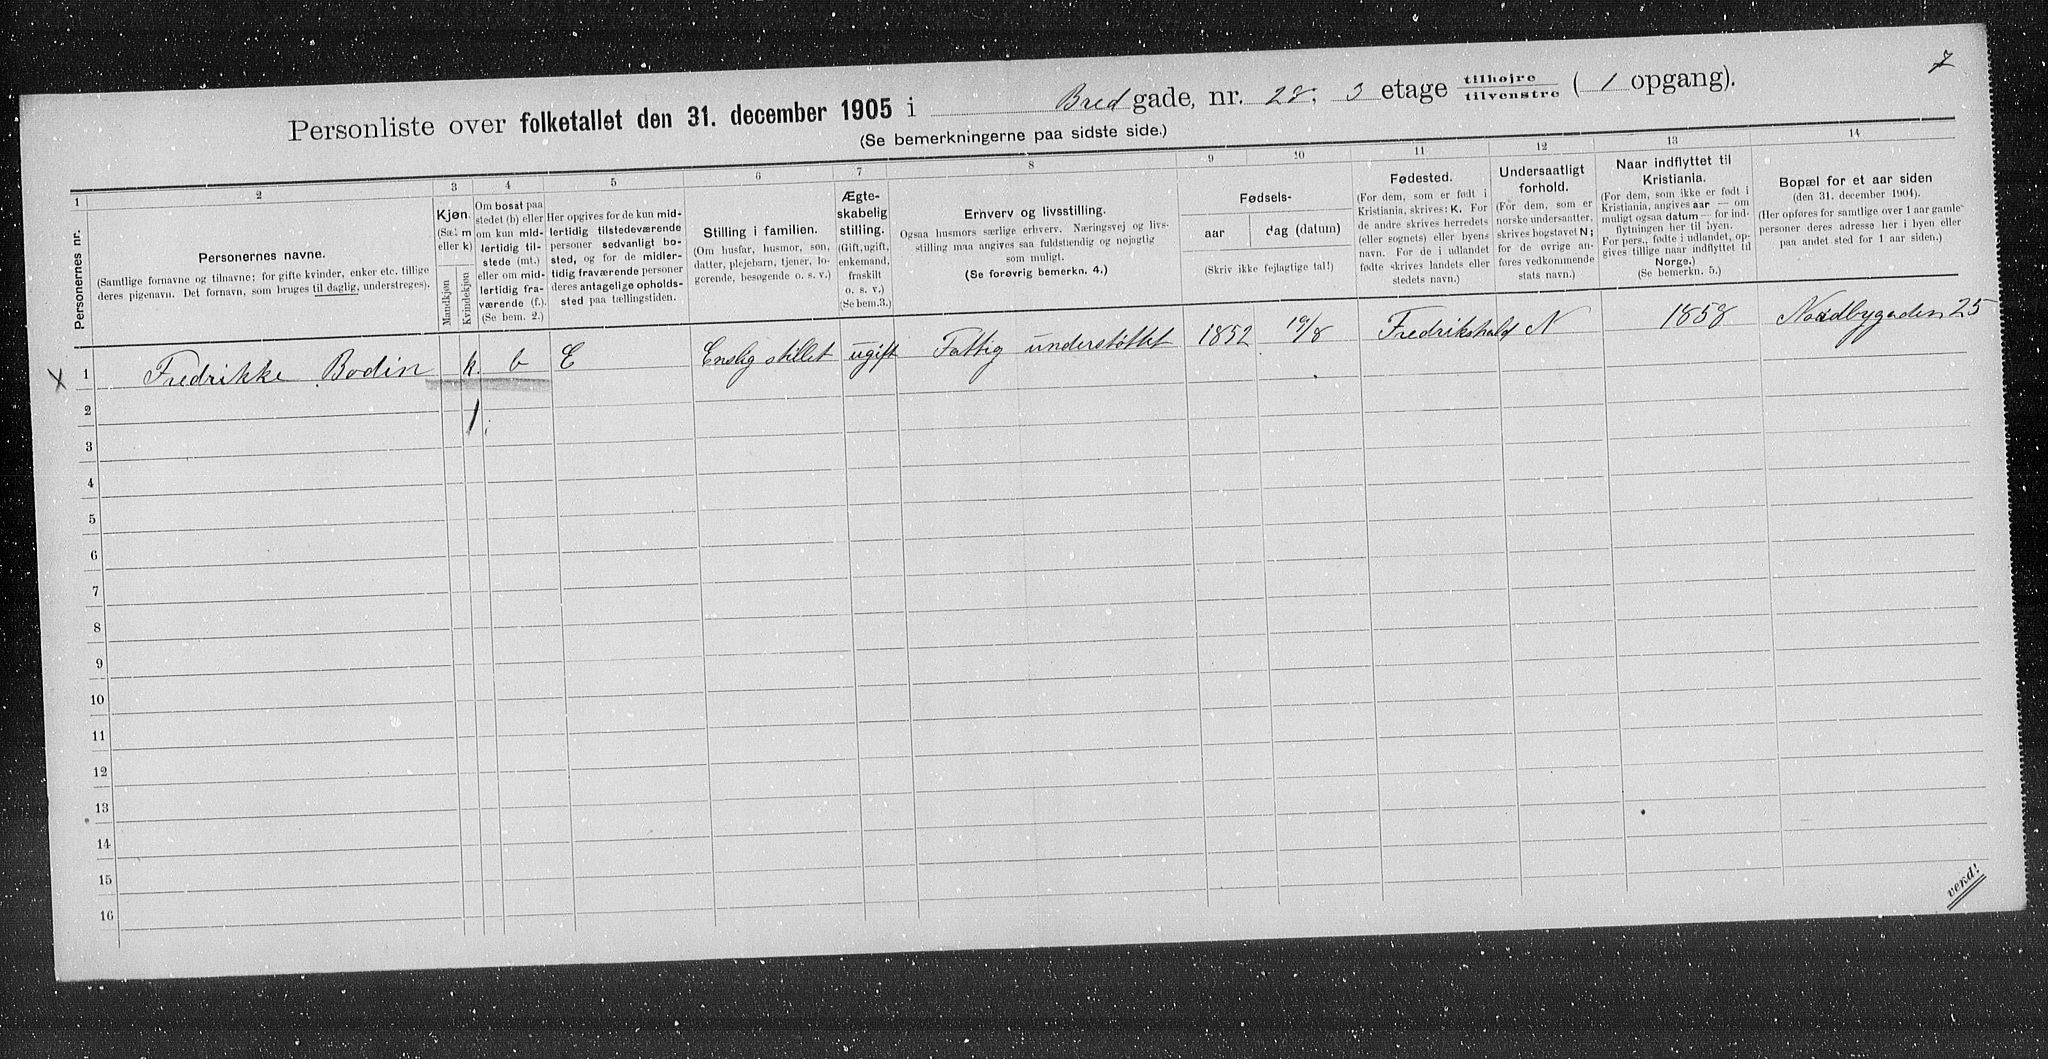 7
Personliste over folketallet den 31. december 1905 i Bredgade, nr. 28, 3 etage tilhøjre tilvenstre ( 1 opgang).
(Se bemerkningerne paa sidste side.)
1 2 3 4 5 6 7 8 9 10 11 12 13 14
Personernes nr.
Personernes navne.
(Samtlige fornavne og tilnavne; for gifte kvinder, enker etc. tillige
deres pigenavn. Det fornavn, som bruges til daglig, understreges).
Kjøn.
(Sæt m
eller k)
Mandkjøn
Kvindekjøn
Om bosat paa
stedet (b) eller
om kun mid-
lertidig til-
stede (mt.)
eller om mid-
lertidig fra-
værende (f.).
(Se bem. 2.)
Her opgives for de kun mid-
lertidig tilstedeværende
personer sedvanlig bo-
sted, og for de midler-
tidig fraværende personer
deres antagelige opholds-
sted paa tællingstiden.
Stilling i familien.
(Om husfar, husmor, søn,
datter, plejebarn, tjener, lo-
gerende, besøgende o. s. v.)
Ægte-
skabelig
stilling.
(Gift, ugift,
enkemand,
fraskilt
o. s. v.)
(Se bem.3.)
Erhverv og livsstilling.
Ogsaa husmors særlige erhverv. Næringsvej og livs-
stilling maa angives saa fuldstændig og nøjagtig
som muligt.
(Se forøvrig bemerkn. 4.)
Fødsels-
aar
dag (datum)
(Skriv ikke fejlagtige tal!)
Fødested.
(For dem, som er født i
Kristiania, skrives: K. For
de andre skrives herredets
(eller sognets) eller byens
navn. For de i udlandet
fødte skrives landets eller
stedets navn.)
Undersaatligt
forhold.
(For dem, som er
norske undersaatter,
skrives bogstavet N;
for de øvrige an-
føres vedkommende
stats navn.)
Naar indflyttet til
Kristiania.
(For dem, som ikke er født i
Kristiania, angives aar — om
muligt ogsaa datum — for ind-
flytningen her til byen.
For pers., fødte i udlandet, op-
gives tillige naar indflyttet til
Norge.)
(Se bemerkn. 5.)
Bopæl for et aar siden
(den 31. december 1904).
(Her opføres for samtlige over 1 aar gamle
personer deres adresse her i byen eller
paa andet sted for 1 aar siden.)
X 1 Fredrikke Bodin k. b E Enslig stillet ugift Fattig understøttet 1852 19/8 Fredrikshald N 1858 Nordbygaden 25
2 1
3
4
5
6
7
8
9
10
11
12
13
14
15
16
vend!